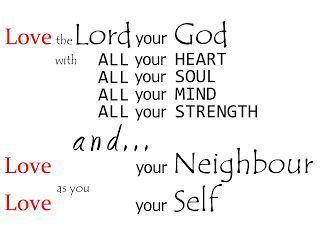 Love the Lord your God
with ALL your HEART
ALL your SOUL
ALL your MIND
ALL your STRENGTH
and...
Love your Neighbour
as you
Love your Self